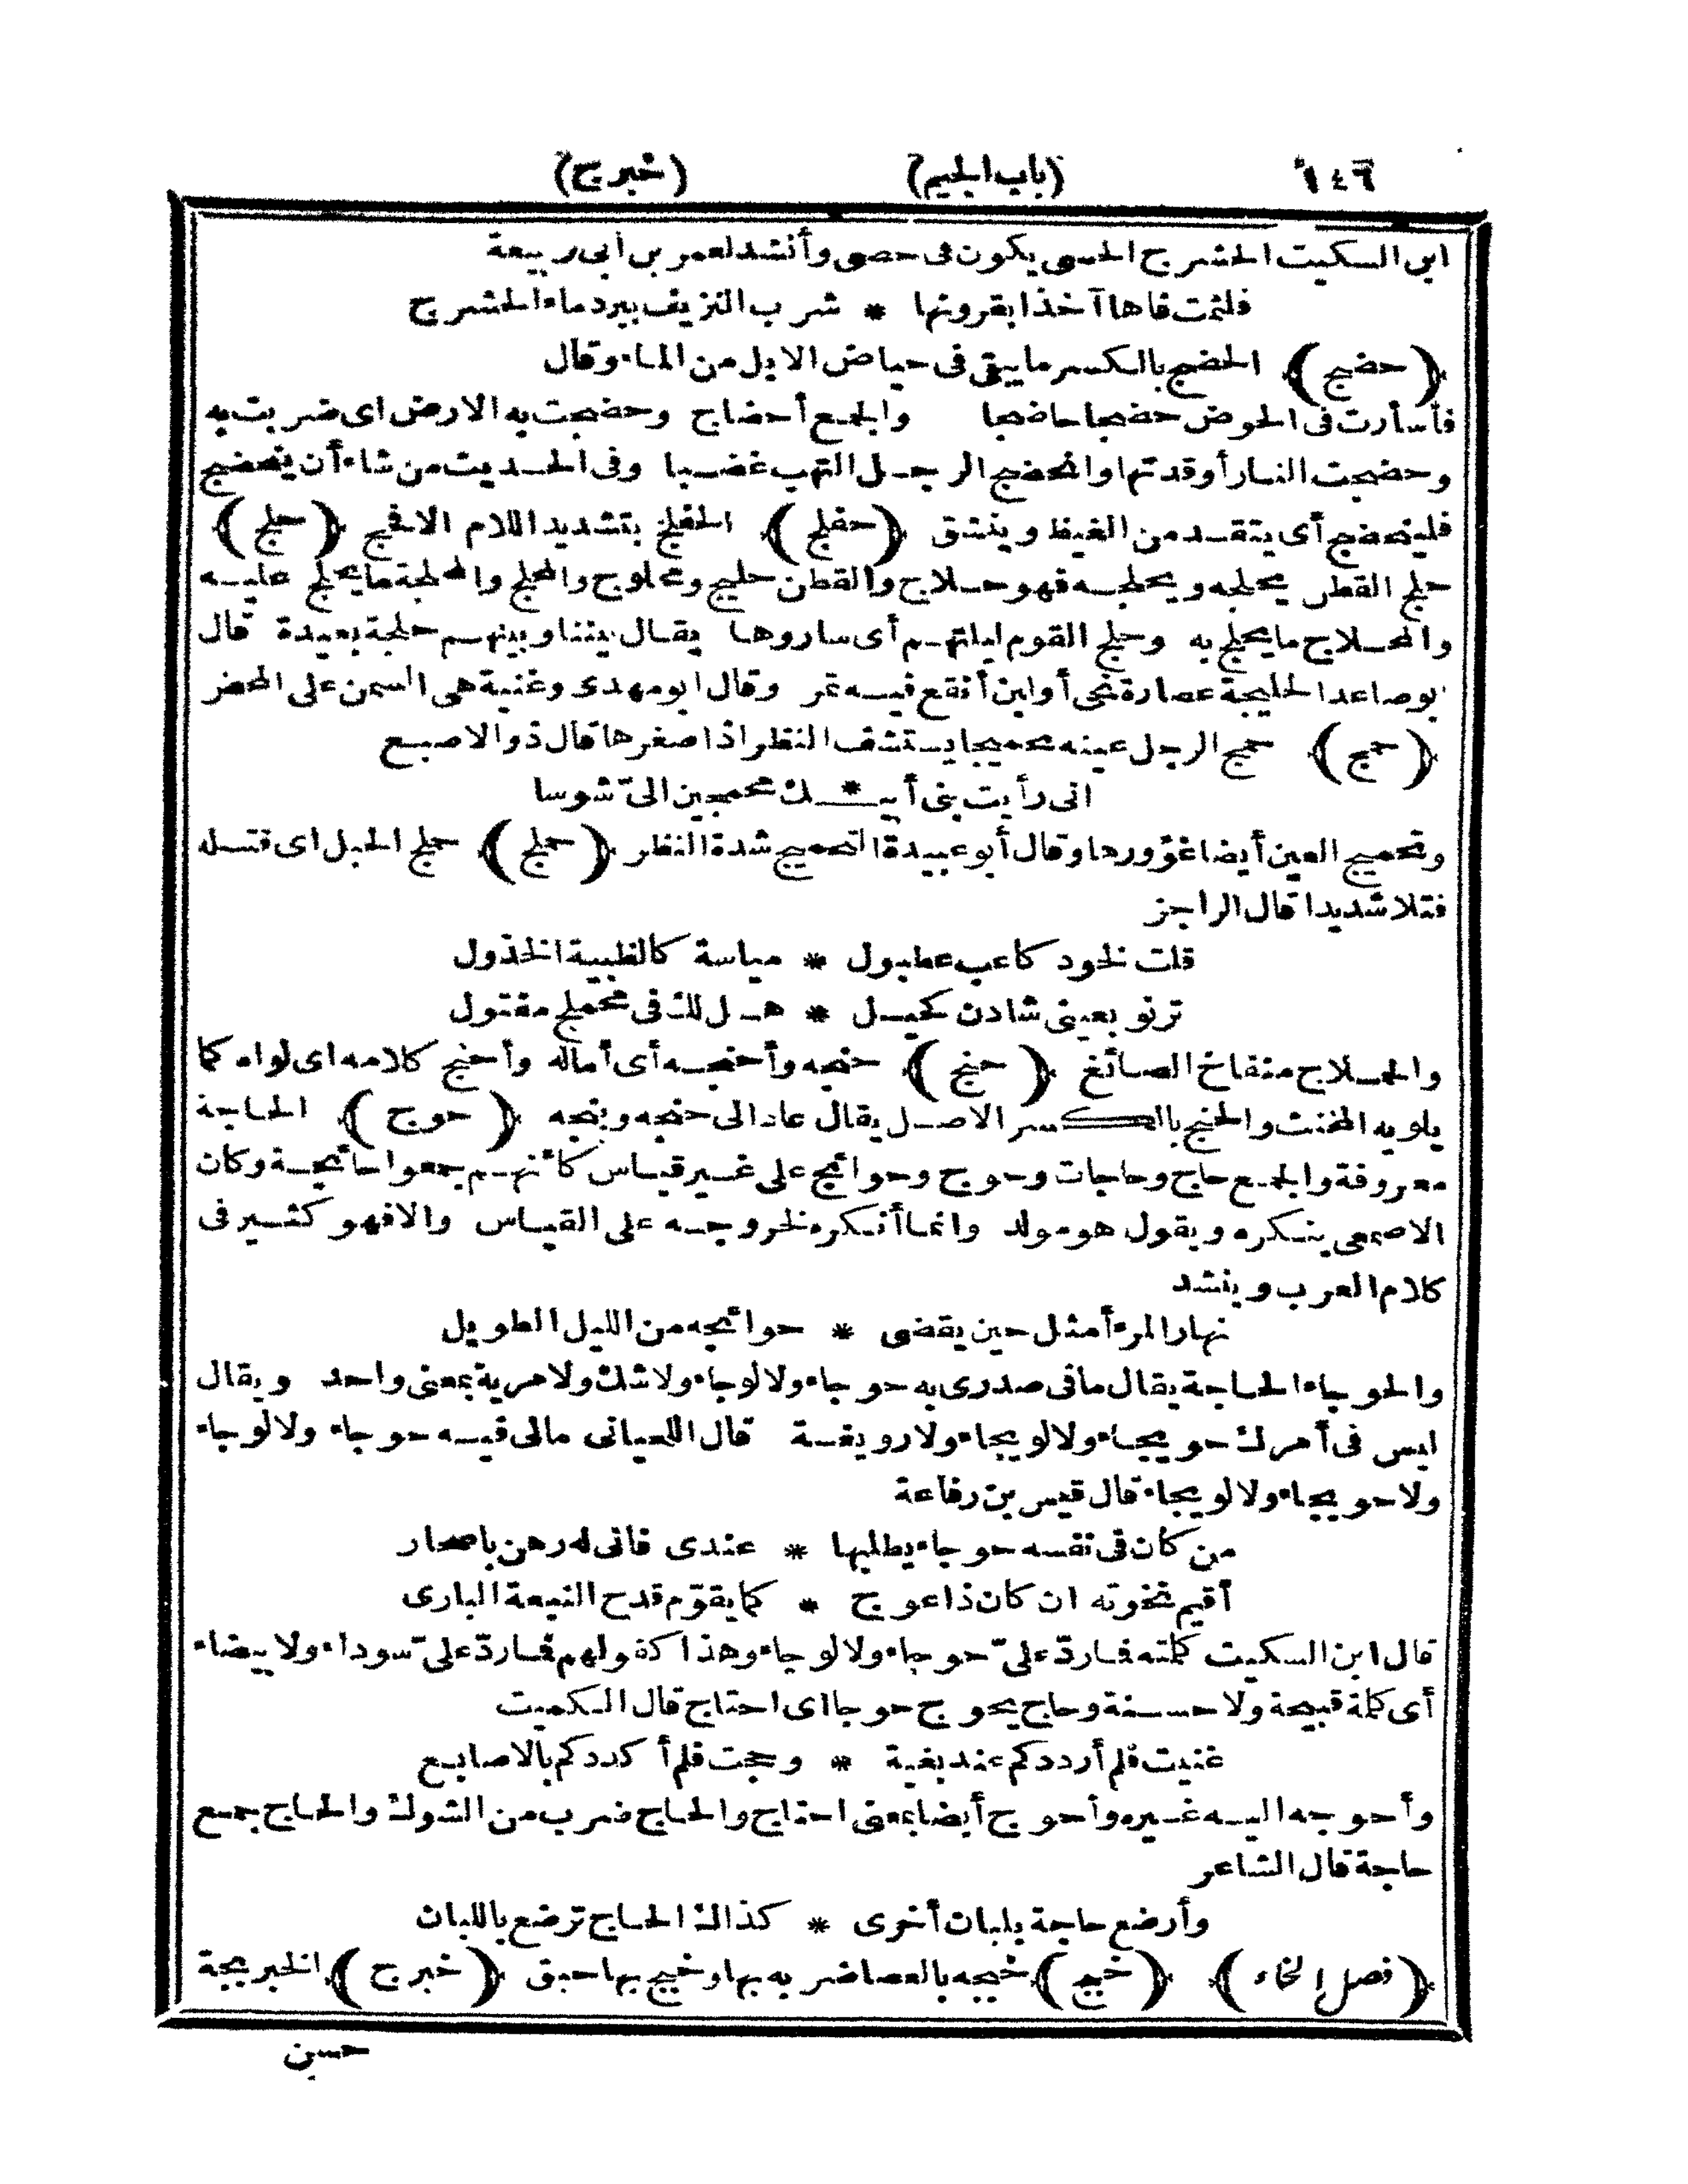 ١٤٦ (باب الجيم) (خبرج)
ابن السكيت الحشرج الحسى يكون فى حصى وأنشد لعمر بن أبى ربيعة
فلثمت فاها آخذا بقرونها * شرب النزيف ببرد ماء الحشرج
﴿حضج﴾ الحضج بالكسر ما يبقى فى حياض الابل من الماء وقال
فأسأرت فى الحوض حضجا حاضجا والجمع أحضاج وحضجت به الارض اى ضربت به
وحضجت النار أوقدتها وانحضج الرجل التهب غضبا وفى الحديث من شاء أن يتحضج
فليتحضج أى يتقد من الغيظ وينشق ﴿حفلج﴾ الحفلج بتشديد اللام الافحج ﴿حلج﴾
حلج القطن يحلجه ويحلجه فهو حلاج والقطن حليج ومحلوج والمحلج والمحلجة ما يحلج عليه
والمحلاج ما يحلج به وحلج القوم ليلتهم أى ساروها يقال بيننا وبينهم حلجة بعيدة قال
ابو صاعد الحليجة عصارة نحى أو لبن أنقع فيه تمر وقال ابو مهدى وغنية هى السمن على المخض
﴿حمج﴾ حمج الرجل عينه تحميجا يستشف النظر اذا صغرها قال ذو الاصبع
انى رأيت بنى أبيـ * ـك محمجين الىّ شوسا
وتحميج العين أيضا غؤورها وقال أبو عبيدة التحميج شدة النظر ﴿حملج﴾ حملج الحبل اى فتله
فتلا شديدا قال الراجز
قلت لخود كاعب عطبول * مياسة كالظبية الخذول
ترنو بعينى شادن كحيل * هل لك فى محملج مفتول
والحملاج منفاخ الصائغ ﴿حنج﴾ حنجه وأحنجه أى أماله وأحنج كلامه اى لواه كما
يلويه المخنث والحنج بالكسر الاصل يقال عاد الى حنجه وبنجه ﴿حوج﴾ الحاجة
معروفة والجمع حاج وحاجات وحوج وحوائج على غير قياس كأنهم جمعوا حائجة وكان
الاصمعى ينكره ويقول هو مولد وانما أنكره لخروجه على القياس والا فهو كثير فى
كلام العرب وينشد
نهار المرء أمثل حين يقضى * حوائجه من الليل الطويل
والحوجاء الحاجة يقال ما فى صدرى به حوجاء ولا لوجاء ولا شك ولا مرية بمعنى واحد ويقال
ليس فى أمرك حويجاء ولا لويجاء ولا رويغة قال اللحيانى مالى فيه حوجاء ولا لوجاء
ولا حويجاء ولا لويجاء قال قيس بن رفاعة
من كان فى نفسه حوجاء يطلبها * عندى فانى له رهن باصحار
أقيم نخوته ان كان ذا عوج * كما يقوّم قدح النبعة البارى
قال ابن السكيت كلمته فما ردّ علىّ حوجاء ولا لوجاء وهذا كقولهم فما ردّ علىّ سوداء ولا بيضاء
أى كلمة قبيحة ولا حسنة وحاج يحوج حوجا اى احتاج قال الكميت
غنيت فلم أرددكم عند بغية * وحجت فلم أكددكم بالاصابع
وأحوجه اليه غيره وأحوج أيضا بمعنى احتاج والحاج ضرب من الشوك والحاج جمع
حاجة قال الشاعر
وأرضع حاجة بلبان أخرى * كذاك الحاج ترضع باللبان
﴿فصل الخاء﴾ ﴿خبج﴾ خبجه بالعصا ضربه بها وخبج بها حبق ﴿خبرج﴾ الخبرجة
حسن